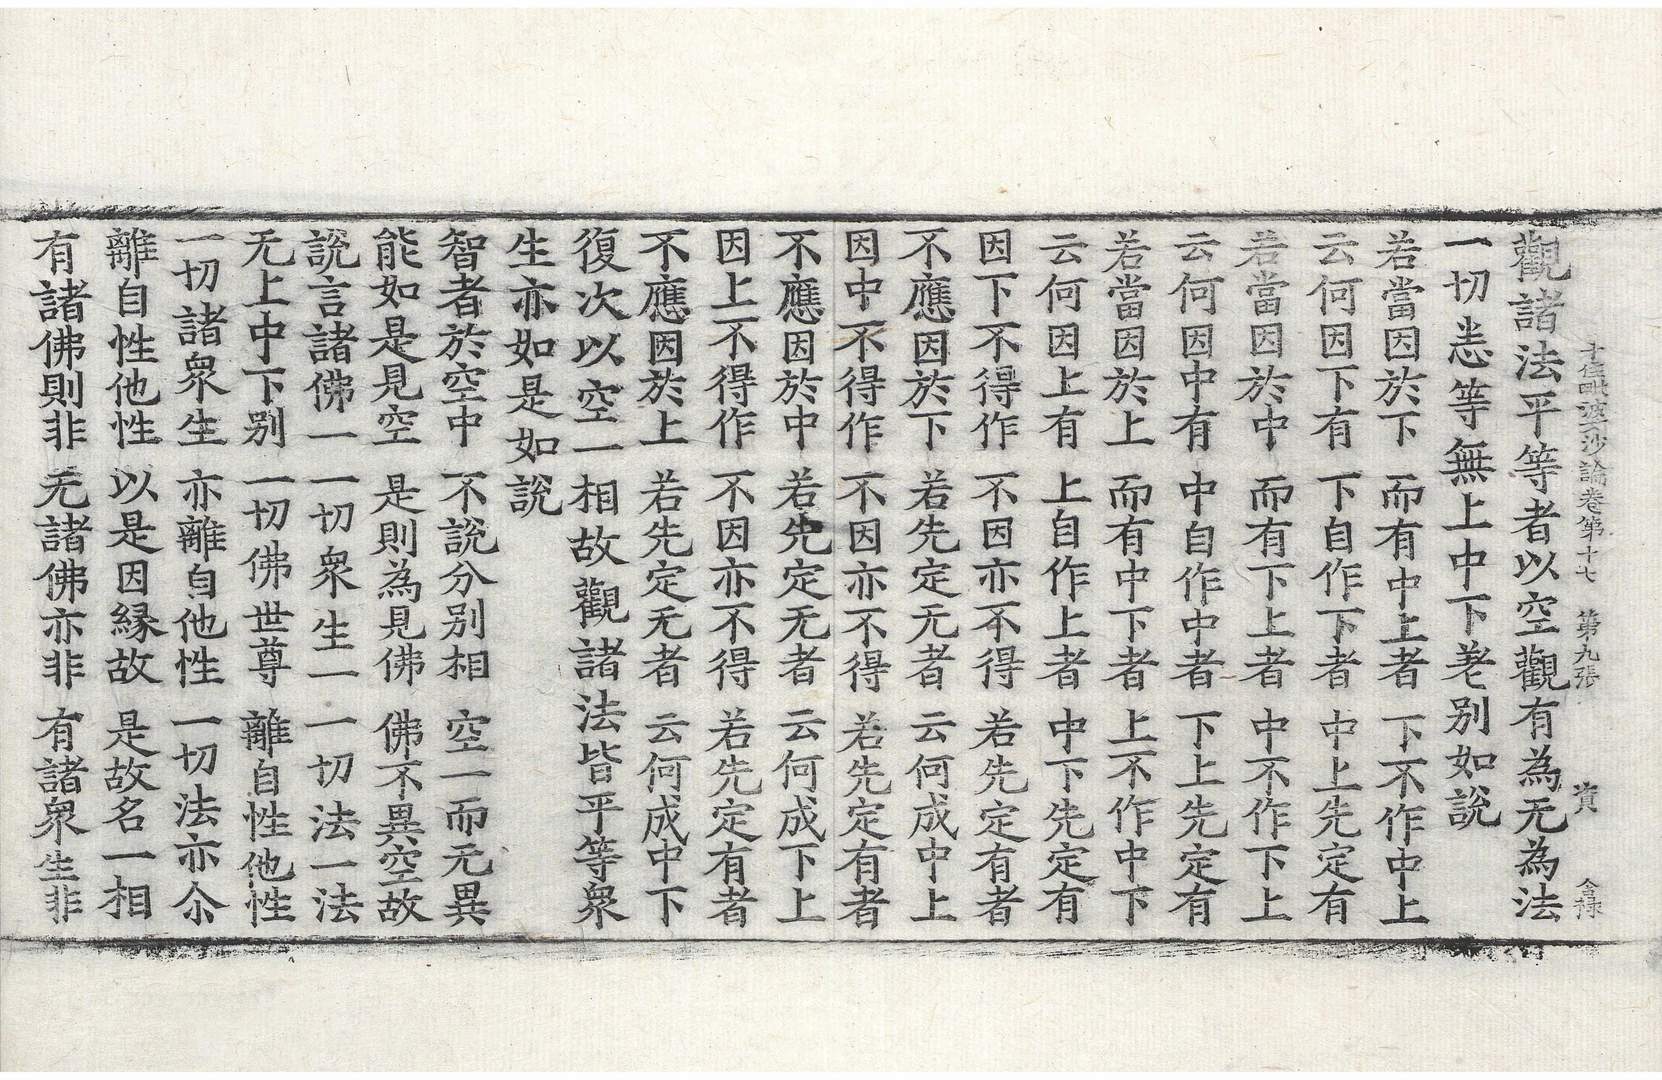 十住毗婆沙論卷第十七 第九張 賓
觀諸法平等者以空觀有為无為法
一切悉等無上中下差別如說
若當因於下 而有中上者 下不作中上
云何因下有 下自作下者 中上先定有
若當因於中 而有下上者 中不作下上
云何因中有 中自作中者 下上先定有
若當因於上 而有中下者 上不作中下
云何因上有 上自作上者 中下先定有
因下不得作 不因亦不得 若先定有者
不應因於下 若先定无者 云何成中上
因中不得作 不因亦不得 若先定有者
不應因於中 若先定无者 云何成下上
因上不得作 不因亦不得 若先定有者
不應因於上 若先定无者 云何成中下
復次以空一相故觀諸法皆平等衆
生亦如是如說
智者於空中 不說分別相 空一而无異
能如是見空 是則為見佛 佛不異空故
說言諸佛一 一切衆生一 一切法一法
无上中下別 一切佛世尊 離自性他性
一切諸衆生 亦離自他性 一切法亦尒
離自性他性 以是因緣故 是故名一相
有諸佛則非 无諸佛亦非 有諸衆生非